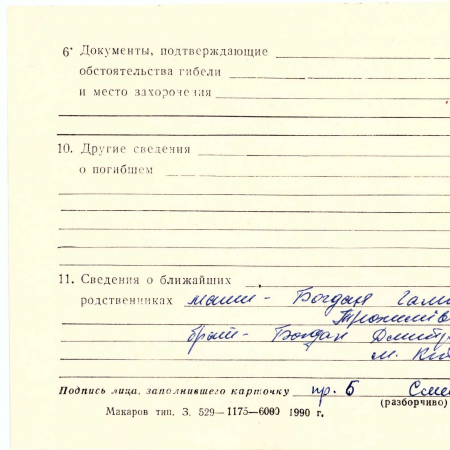 6• Документы, подтверждающие
обстоятельства гибели
и место захоронения
10. Другие сведения
о погибшем
11. Сведения о ближайших
родственниках мати - Богдан Гали
Трохимів
брат - Богдан Дмитр
м. Киї
Подпись лица, заполнившего карточку пр. Б Семе
(разборчиво)
Макаров тип. З. 529—1175—6000 1990 г.